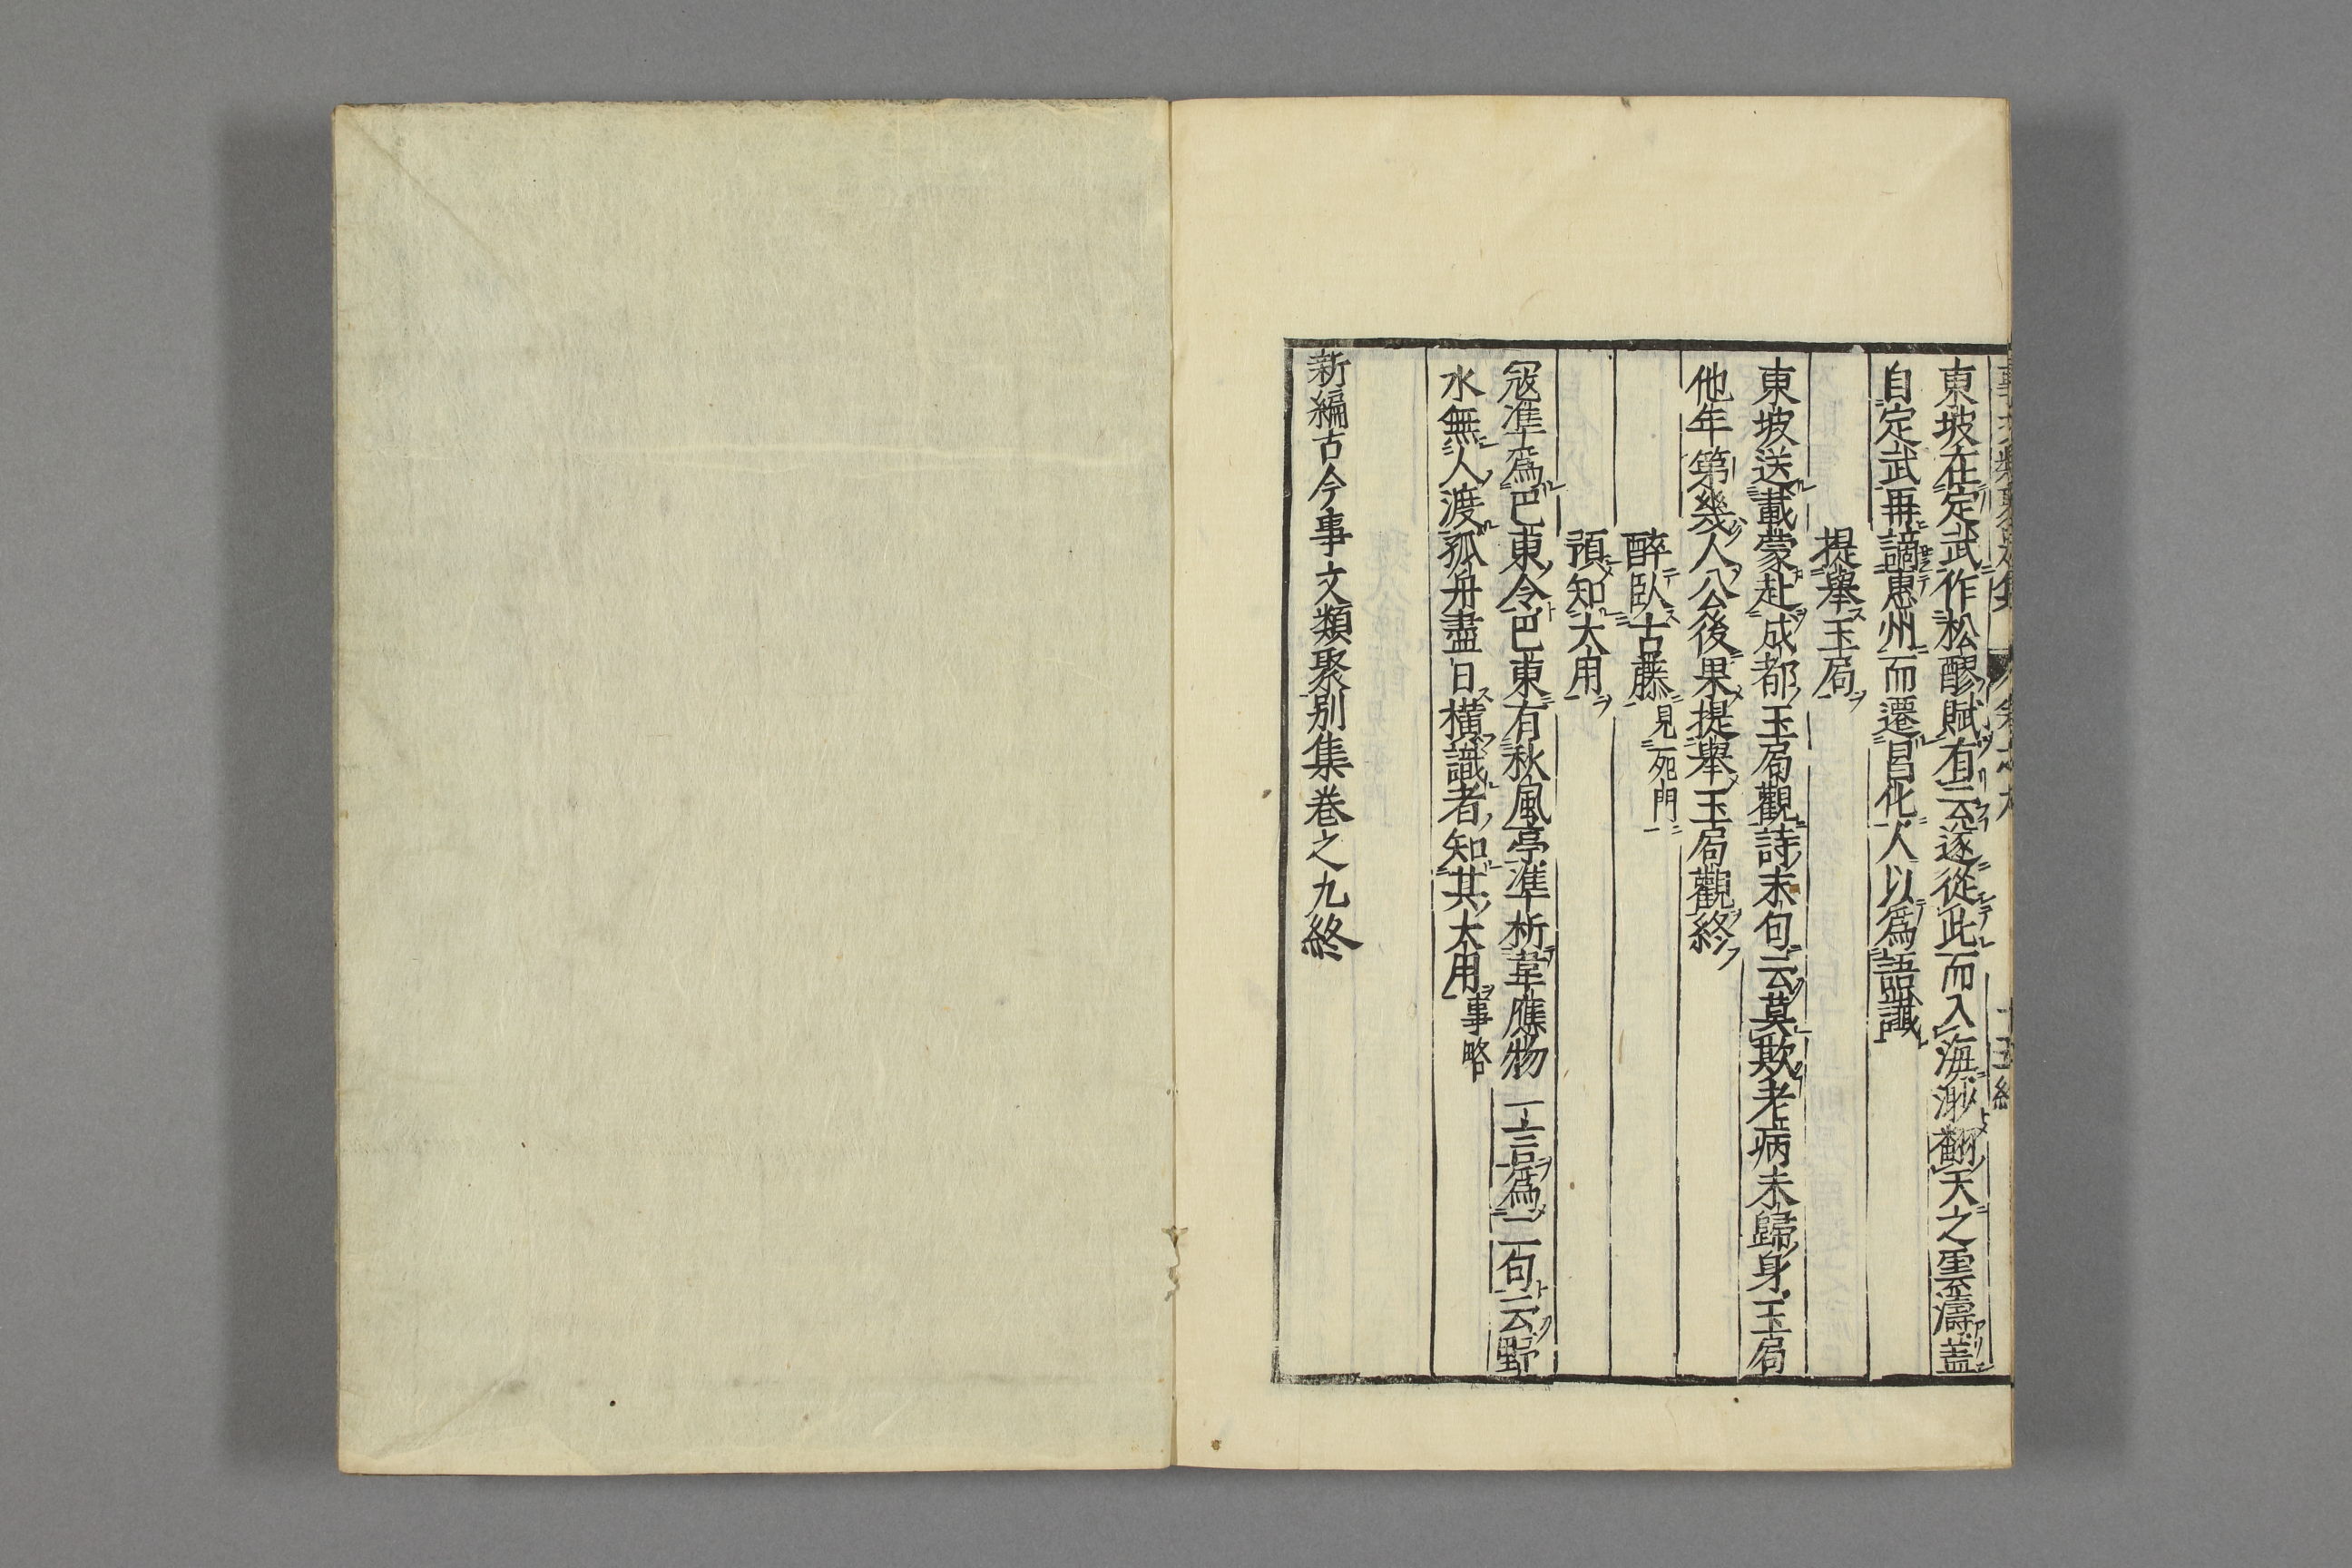 東坡在定武作松醪賦有云遂從此而入海渺翻天之雲濤蓋
自定武再謫惠州而遷昌化人以爲語讖
提舉玉局
東坡送戴蒙赴成都玉局觀詩末句云莫欺老病未歸身玉局
他年第幾人公後果提舉玉局觀終
醉臥古藤見死門
預知大用
寇準爲巴東令巴東有秋風亭準析韋應物一言爲二句云野
水無人渡孤舟盡日橫識者知其大用事略
新編古今事文類聚别集卷之九終